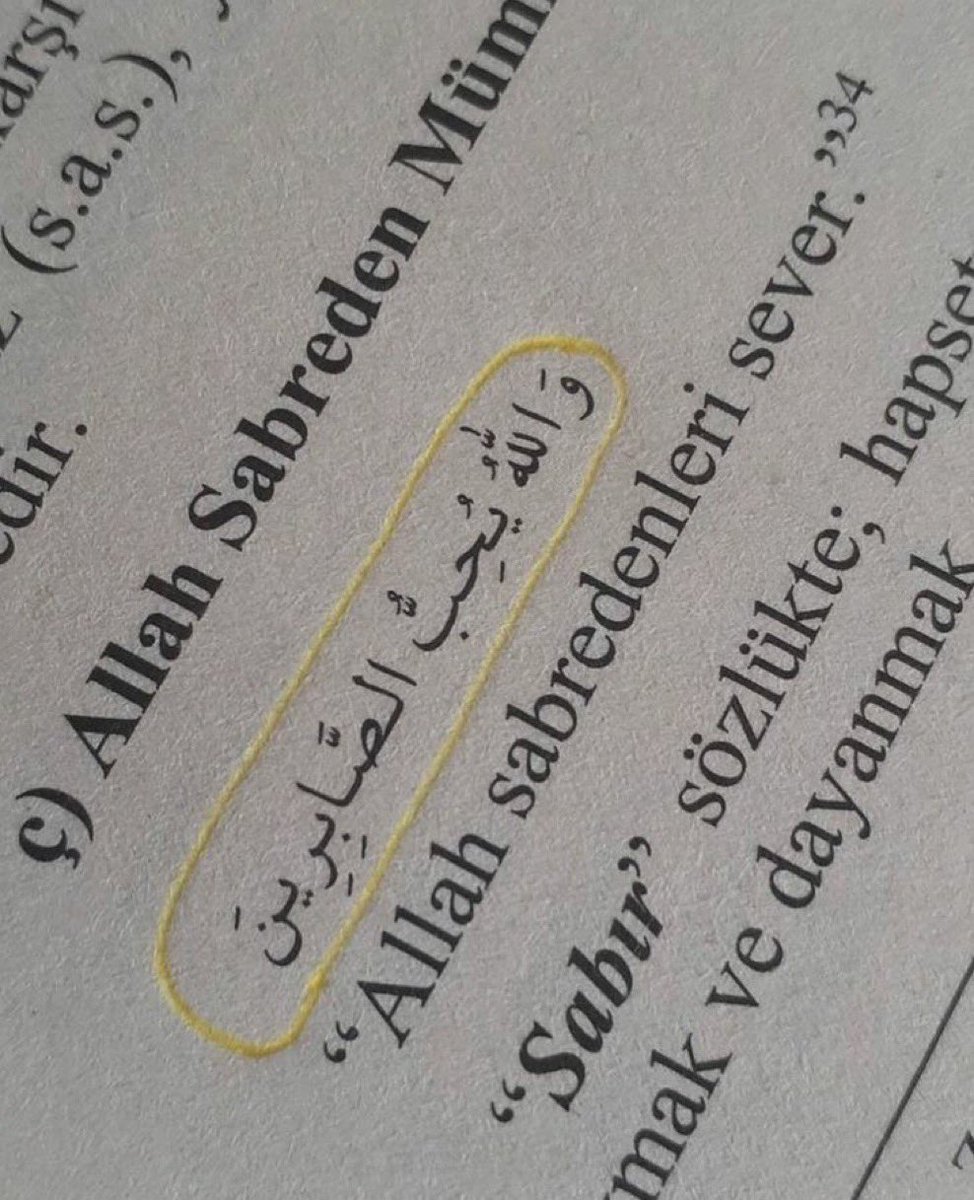 (s.a.s.),
ç) Allah Sabreden
وَاللّٰهُ يُحِبُّ الصَّابِرِينَ
“Allah sabredenleri sever.”34
“Sabır” sözlükte;
ve dayanmak